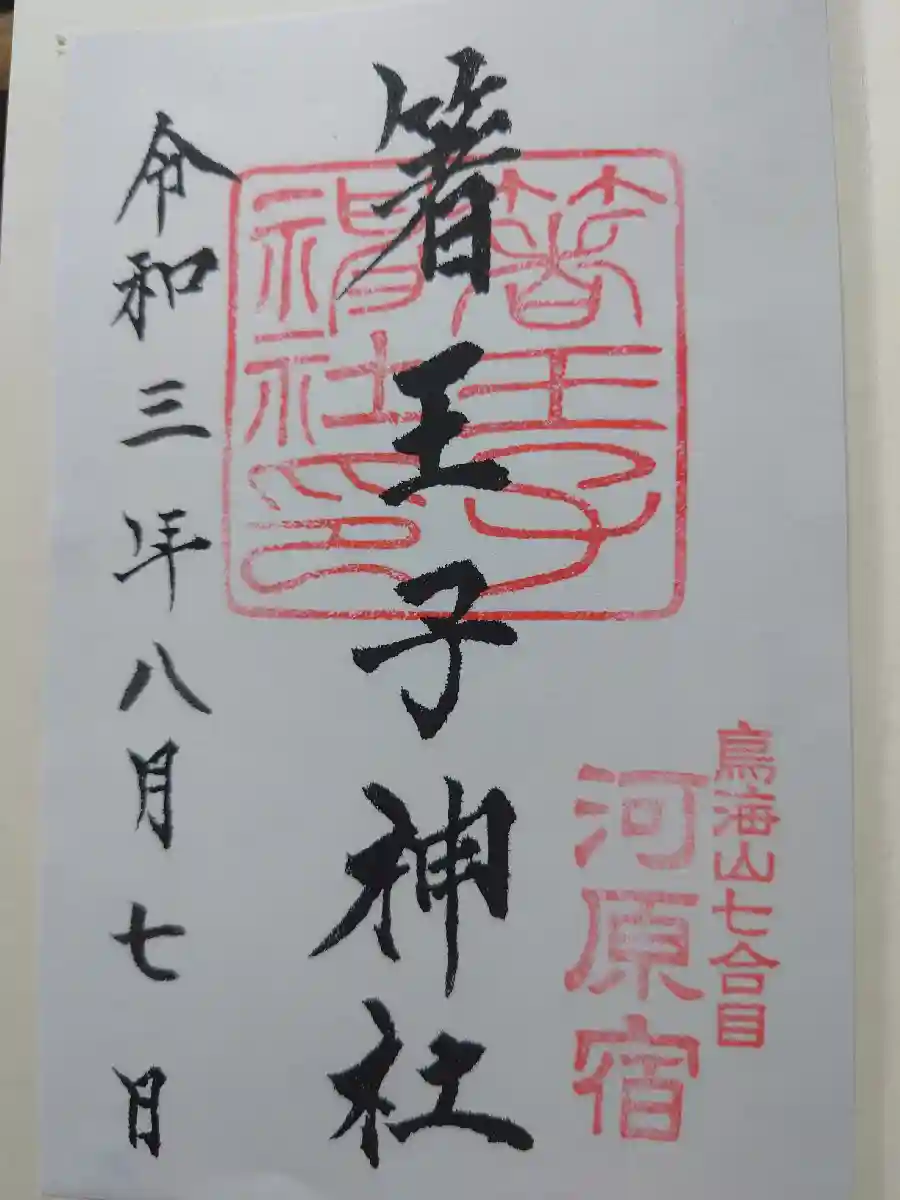 鳥海山七合目
河原宿
箸王子神社
箸王子神社印
令和三年八月七日